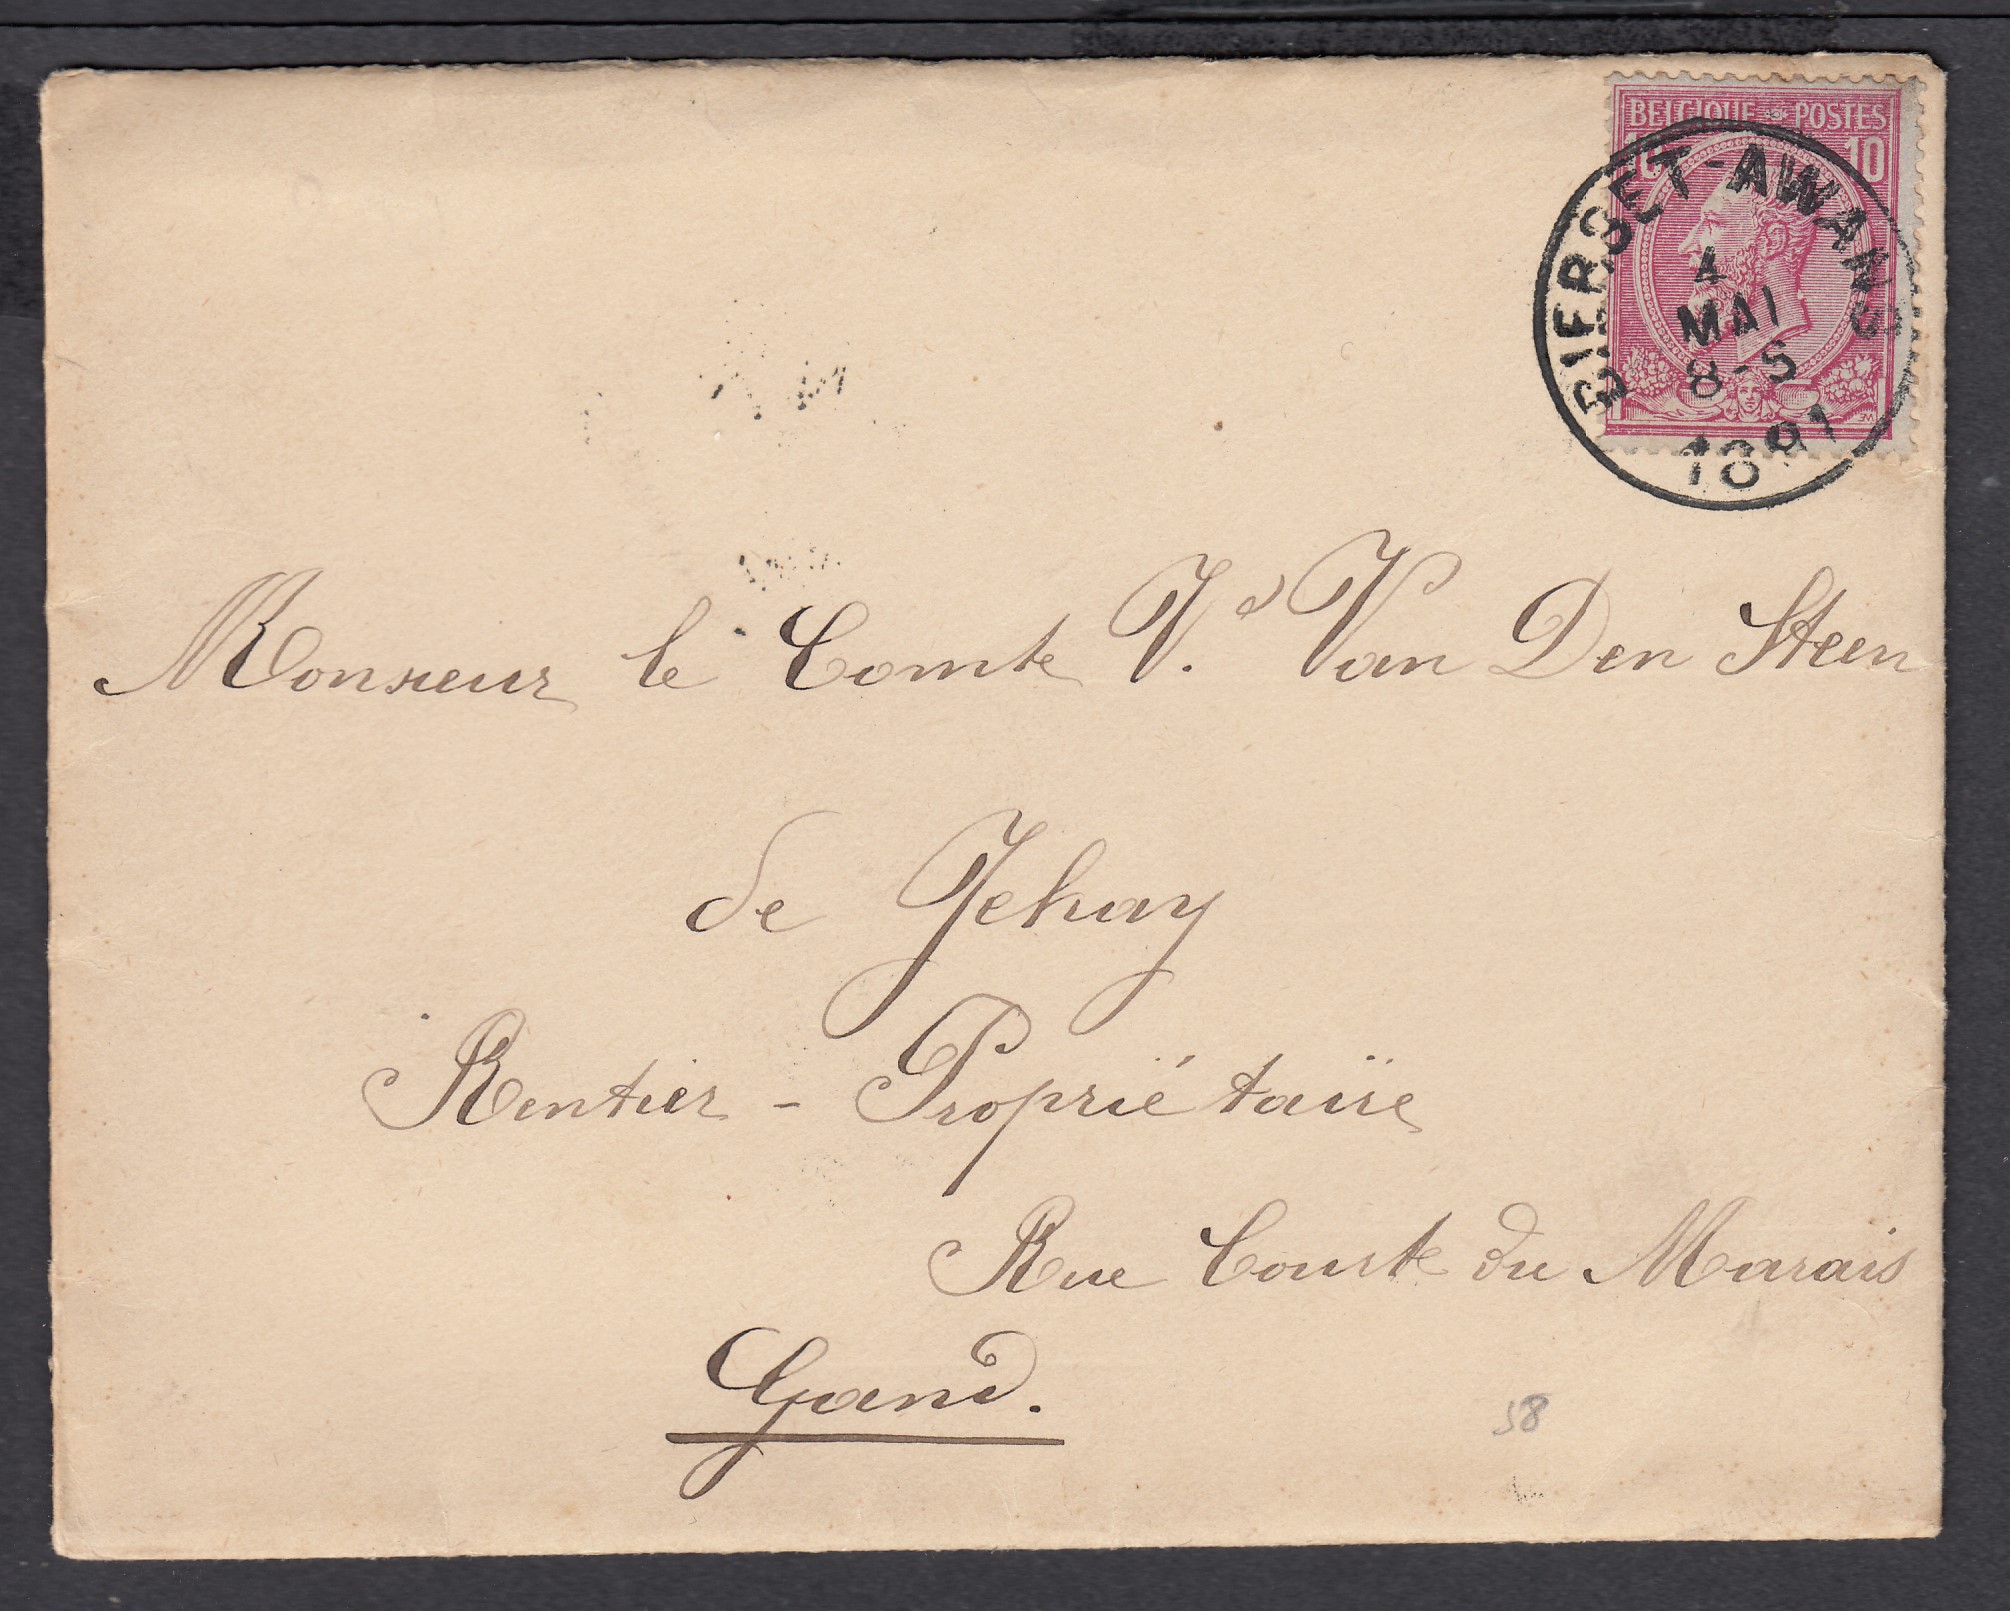 BELGIQUE POSTES
10 10
BIERSET-AWANS
4
MAI
8-S
1891
Monsieur le Comte V.d Van Den Steen
de Jehay
Rentier - Propriétaire
Rue Courte du Marais
Gand.
58